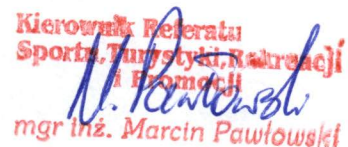 Kierownik Referatu
Sportu, Turystyki, Rekreacji
i Promocji
M. Pawłowski
mgr inż. Marcin Pawłowski